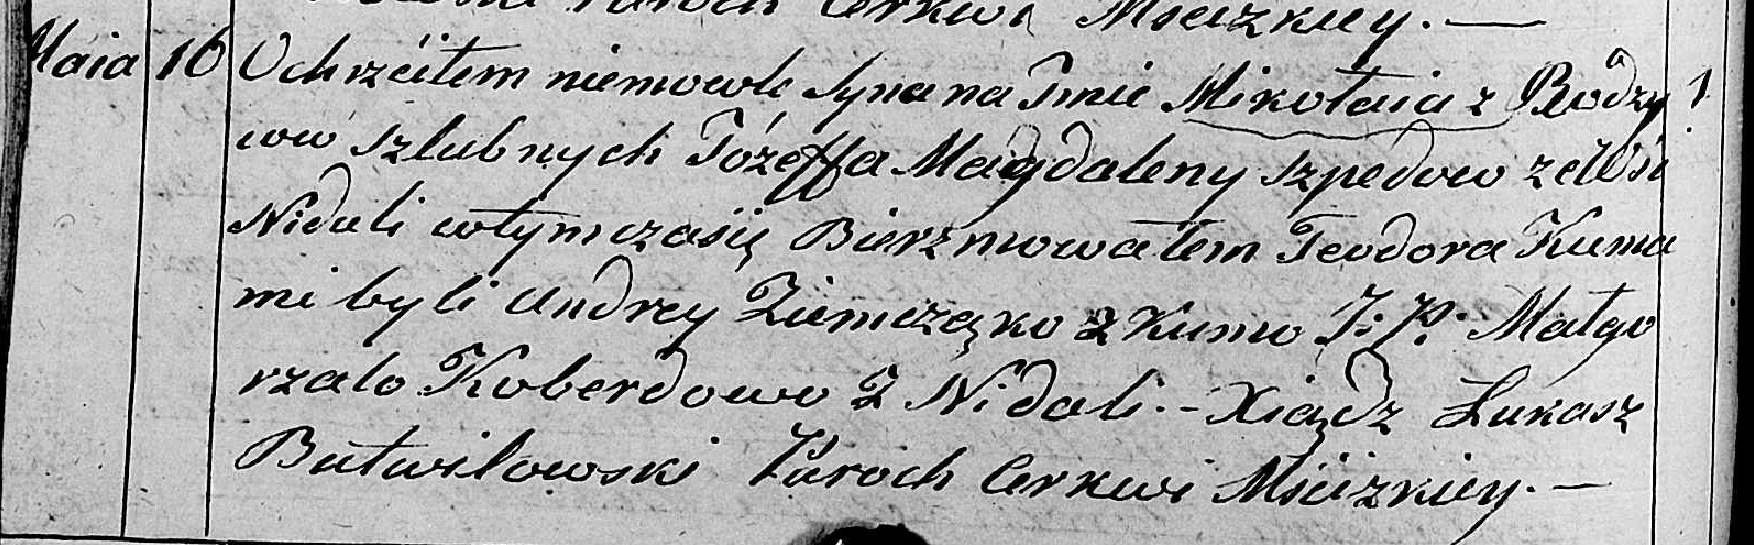 Cerkwi Msciżkiey. —
Maia 16 Ochrzciłem niemowle syna na Jmie Mikołaia z Rodzy 1
ców szlubnych Józeffa Magdaleny Szpedow ze Wsi
Nidali wtymczasię Bierzmowałem Teodora Kuma
mi byli Andrey Ziemcząko z Kumo J: P. Małgo
rzato Koberdowo z Nidali. - Xiądz Łukasz
Butwiłowski Paroch Cerkwi Mściżkiey. —